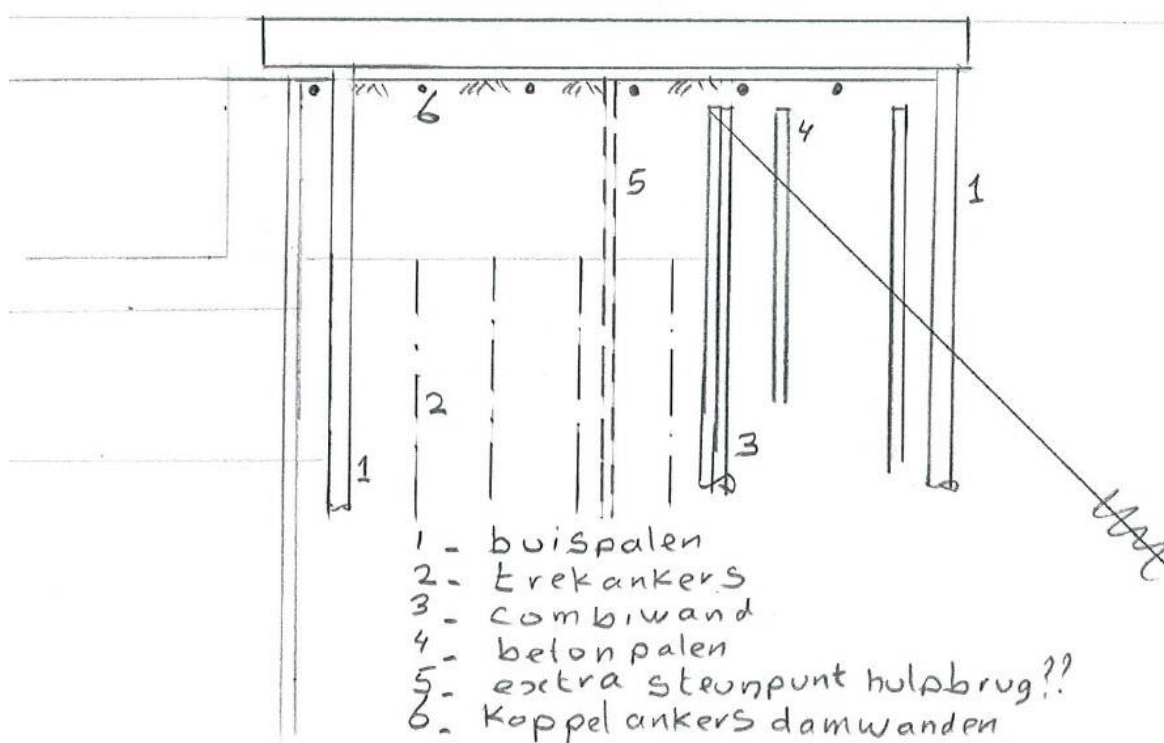 6
4
5
1
2
3
1
1- buispalen
2- trekankers
3- combiwand
4- betonpalen
5- extra steunpunt hulpbrug??
6- Koppel ankers damwanden